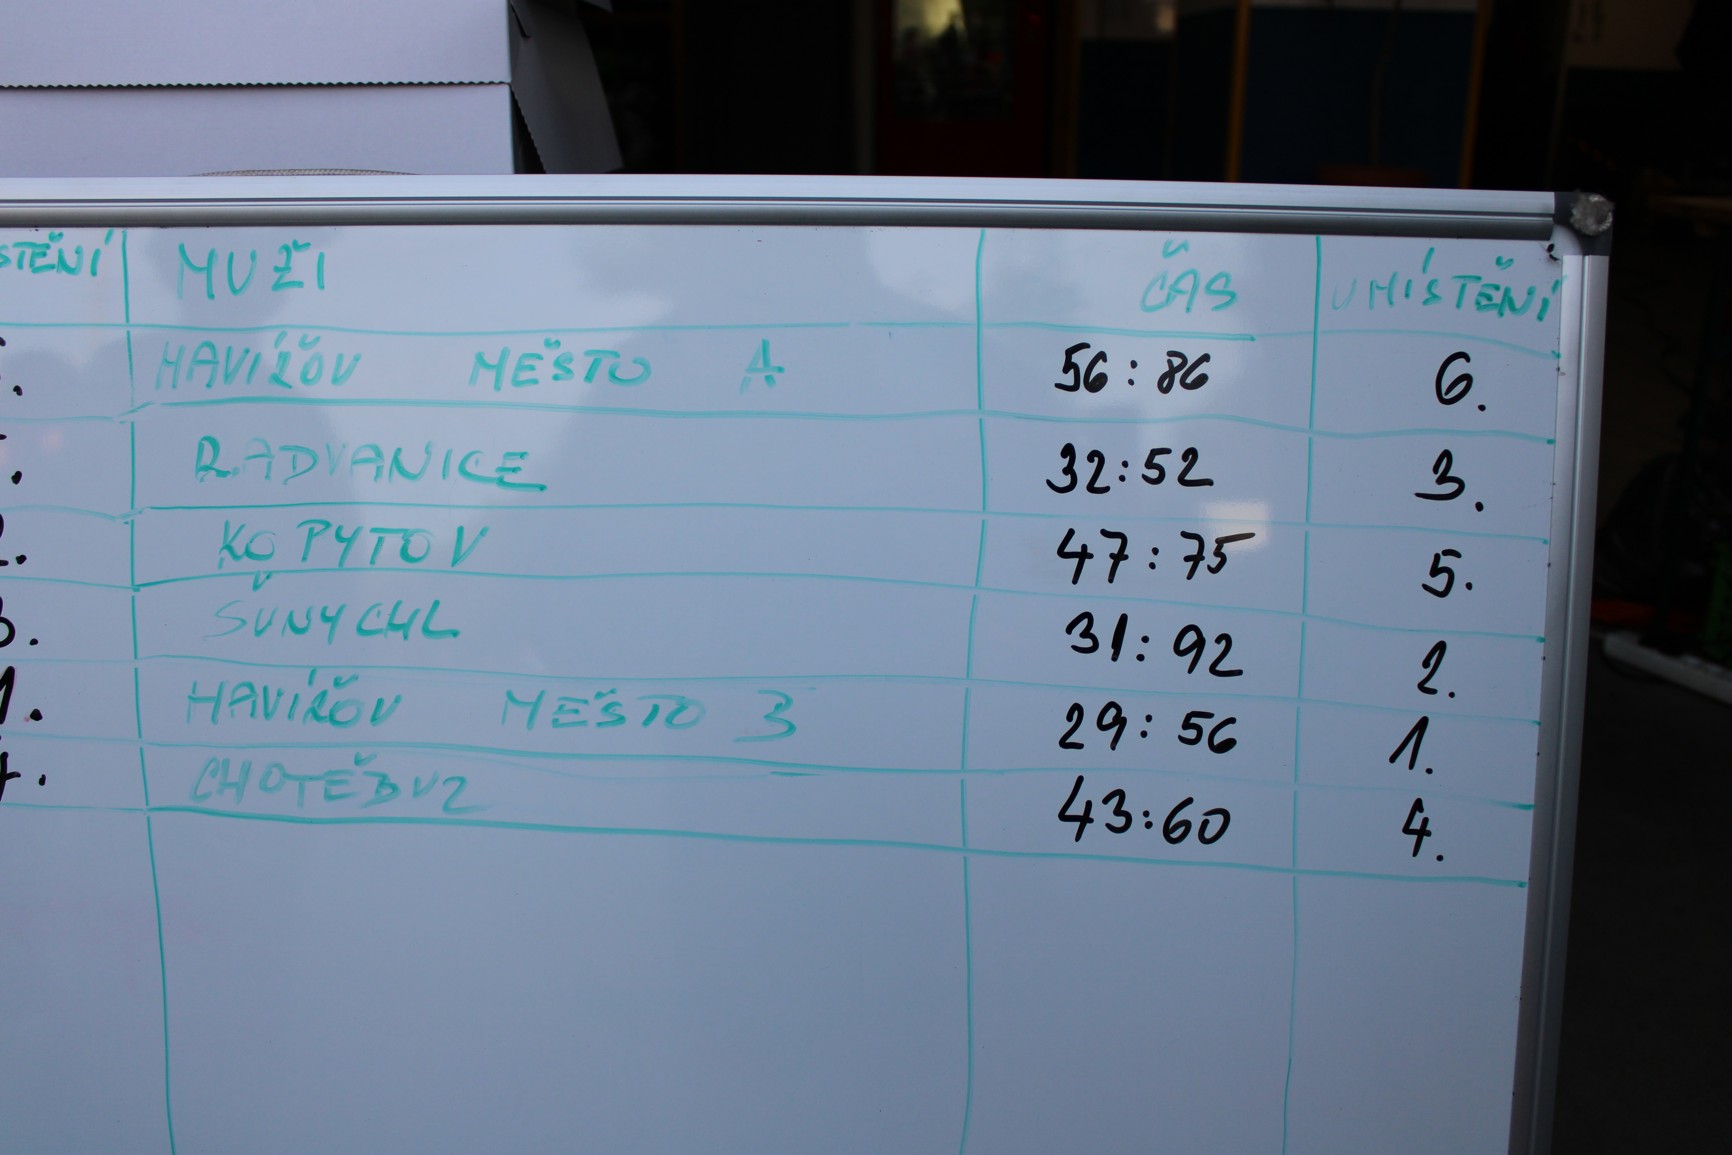 STĚNÍ MUŽI ČAS UMÍSTĚNÍ
HAVÍŘOV MĚSTO A 56:86 6.
RADVANICE 32:52 3.
2. KOPYTOV 47:75 5.
3. ŠUNYCHL 31:92 2.
1. HAVÍŘOV MĚSTO B 29:56 1.
4. CHOTĚBUZ 43:60 4.